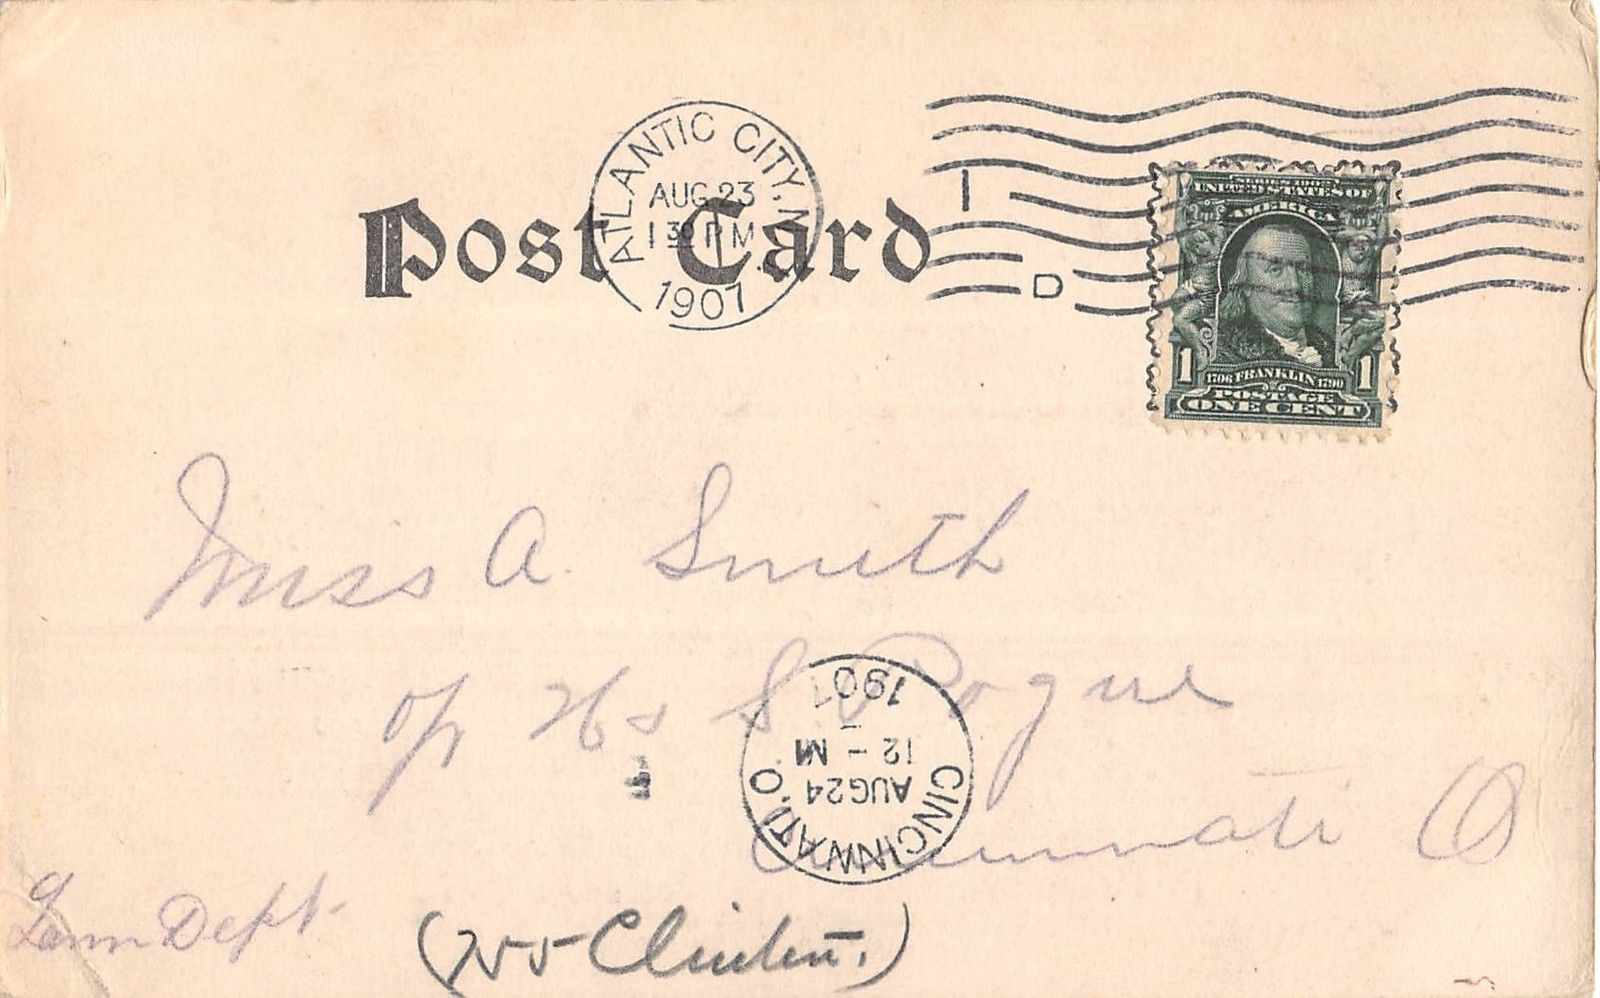 Post Card
ATLANTIC CITY, N.J.
AUG 23
1 30 PM
1907
I
D
UNITED STATES OF
AMERICA
1 1706 FRANKLIN 1790 1
POSTAGE
ONE CENT
Miss A. Smith
Pogue
Cincinnati O
CINCINNATI, O.
AUG 24
12 - M
1907
Dept.
Clinton.)